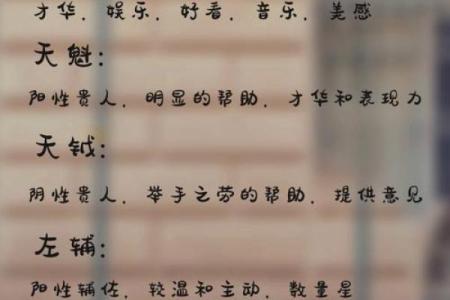 才华，娱乐，好看，音乐，美感
天魁：
阳性贵人，明显的帮助，才华和表现力
天钺：
阴性贵人，举手之劳的帮助，提供意见
左辅：
阳性辅佐，较温和主动，数量星